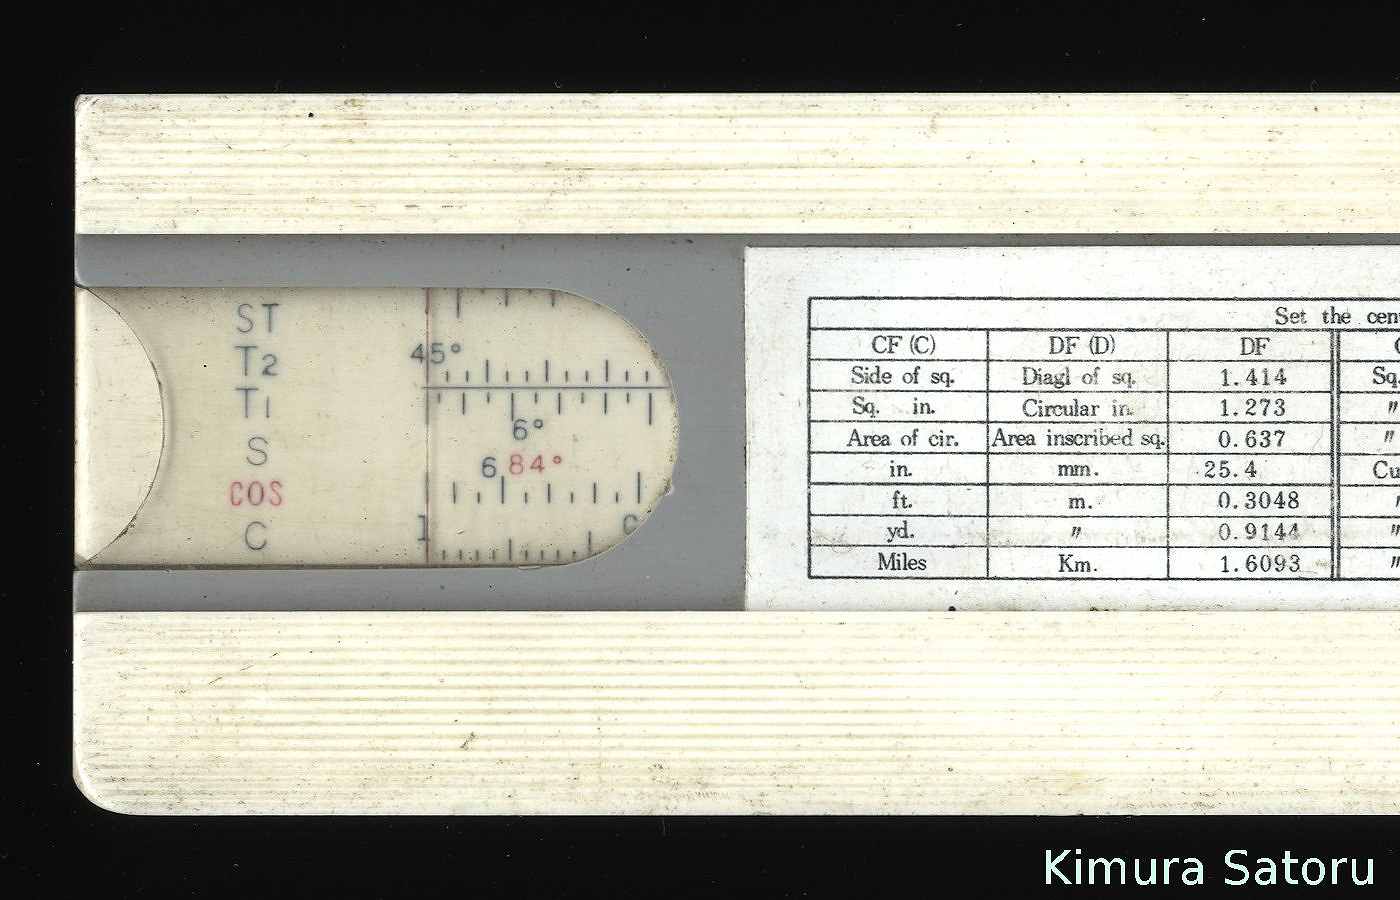 ST
T2
T1
S
COS
C
45°
6°
6 84°
1
Set the
CF (C) DF (D) DF
Side of sq. Diagl of sq. 1.414 Sq.
Sq. in. Circular in. 1.273 〃
Area of cir. Area inscribed sq. 0.637 〃
in. mm. 25.4 Cu
ft. m. 0.3048
yd. 〃 0.9144 〃
Miles Km. 1.6093 〃
Kimura Satoru